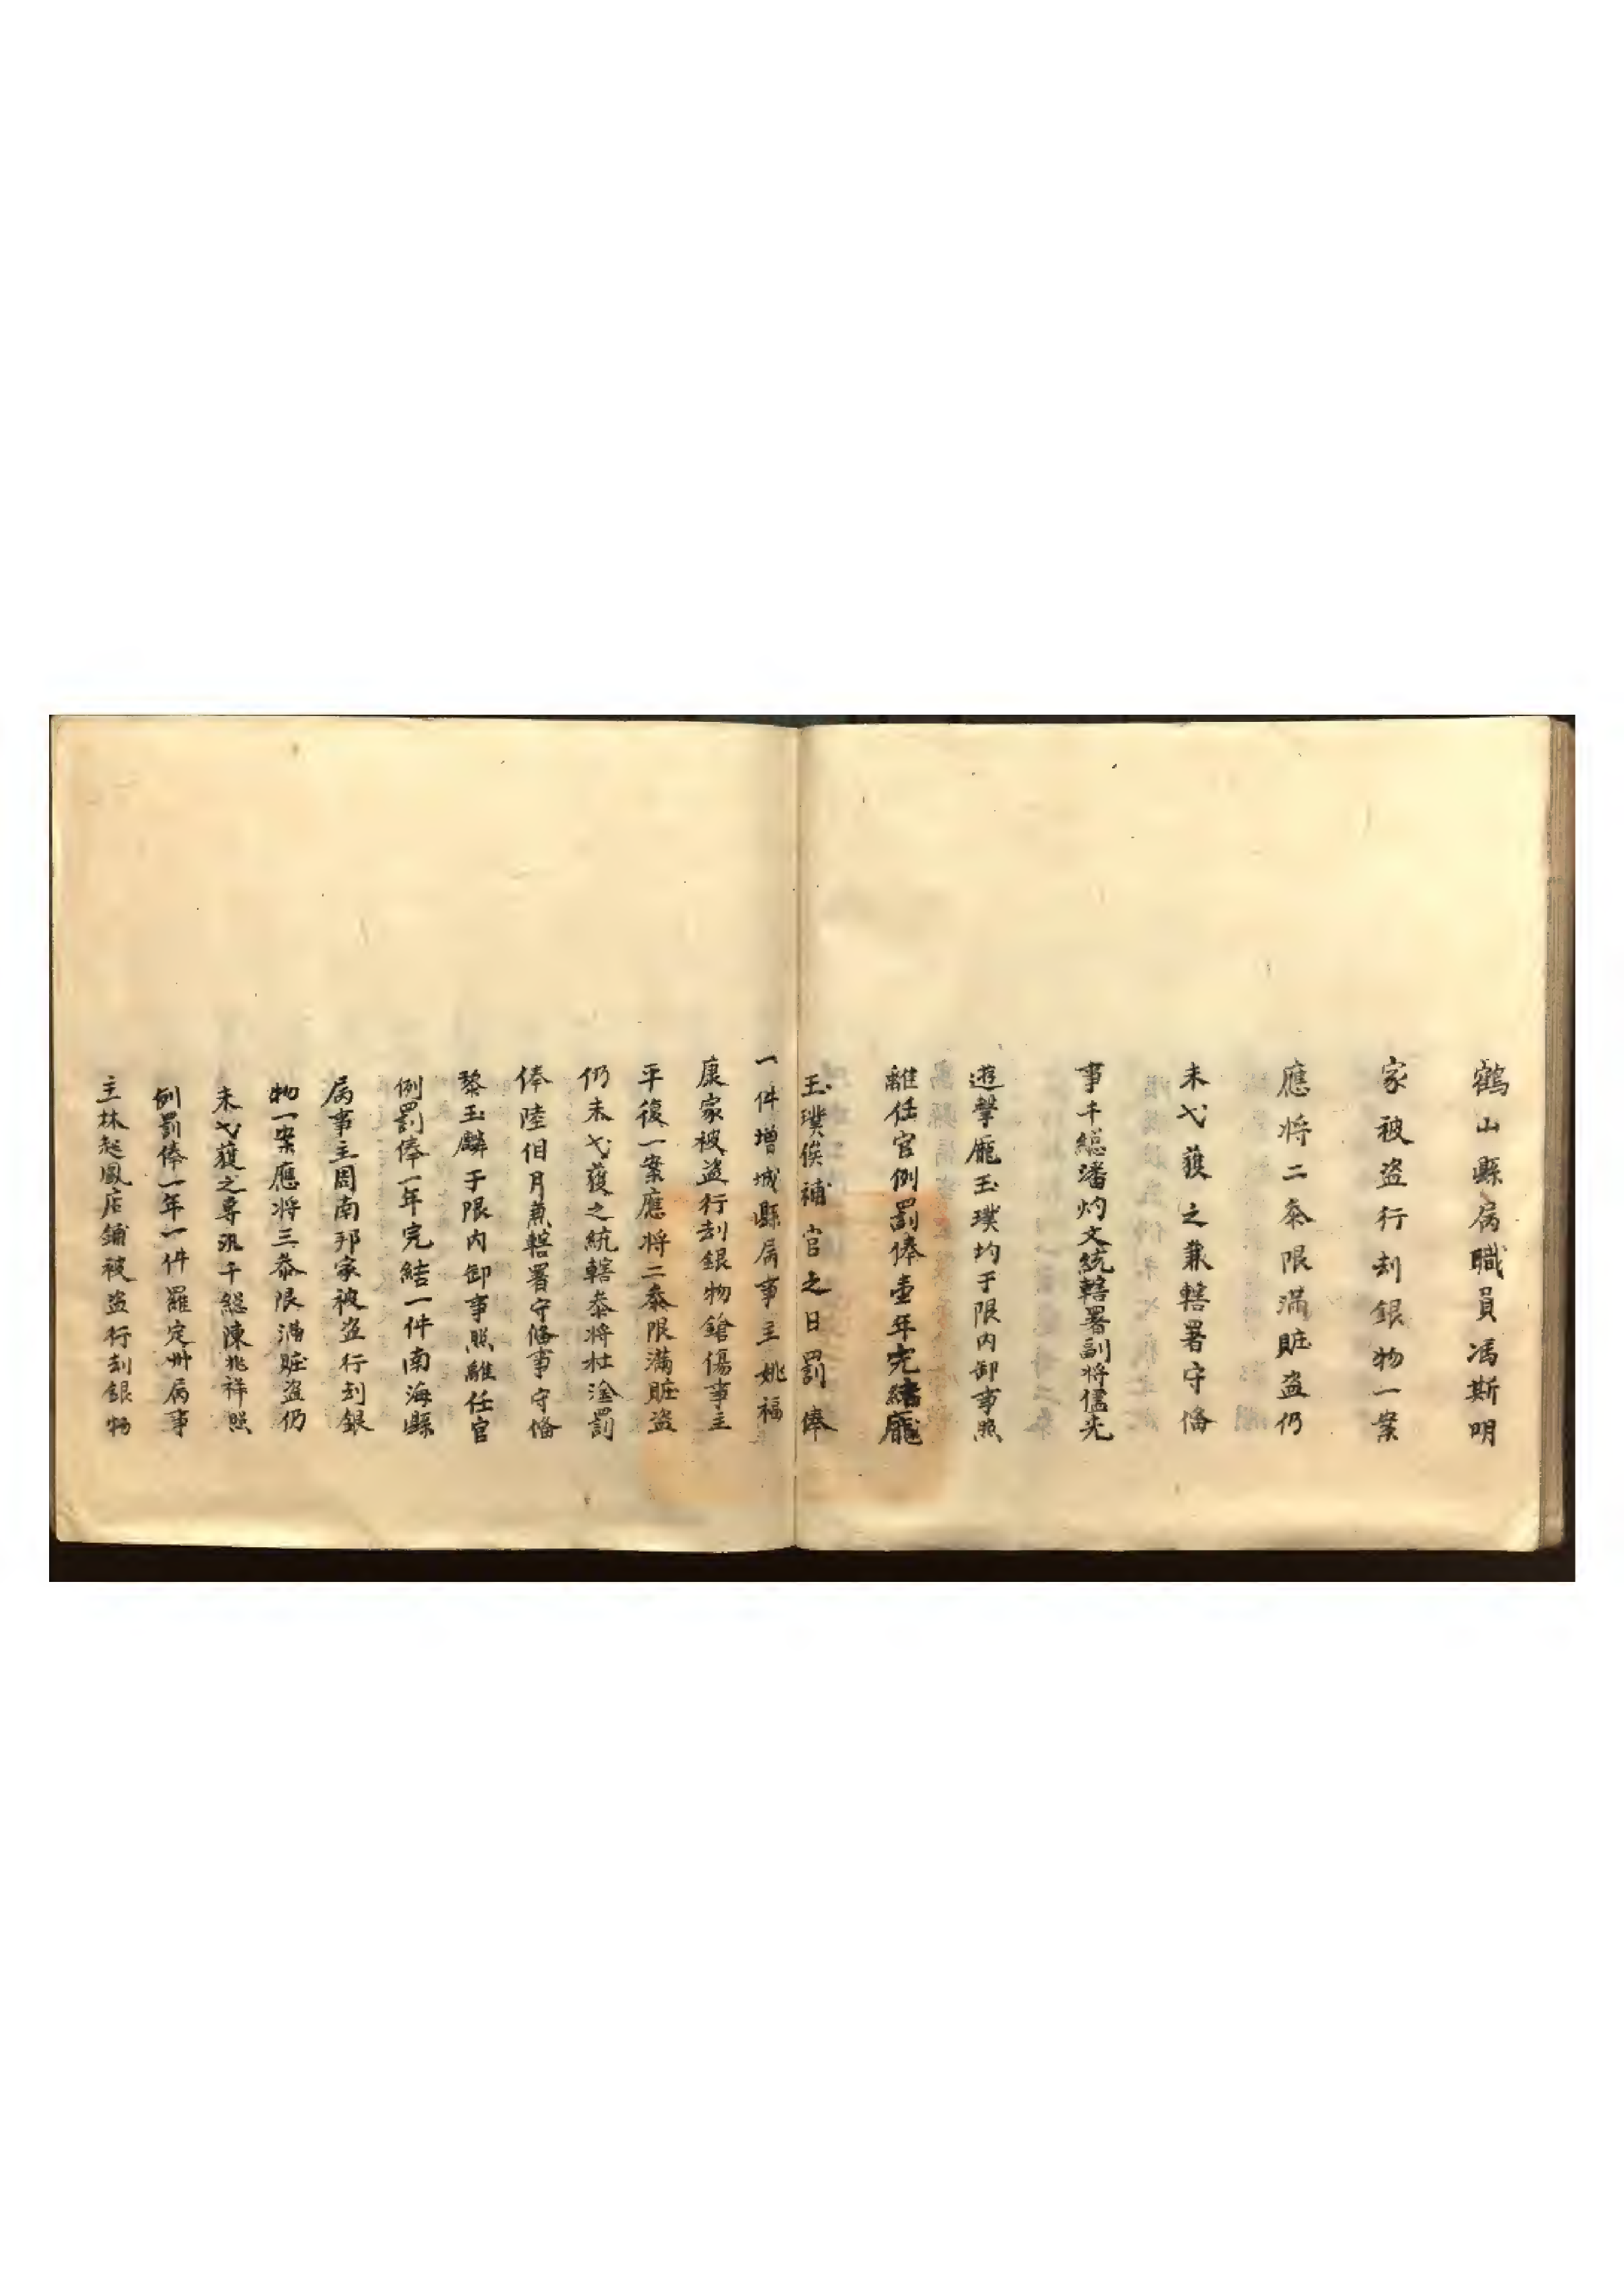 鶴山縣属職員馮斯明
家被盗行刦銀物一案
應将二叅限满賍盗仍
未弋獲之兼轄署守俻
事千総潘灼文統轄署副将儘先
遊擊龐玉璞均于限内卸事照
離任官例罰俸壹年完結龐
玉璞俟補官之日罰俸
一件增城縣属事主姚福
康家被盗行刦銀物鎗傷事主
平復一案應将二叅限满賍盗
仍未弋獲之統轄叅将杜淦罰
俸陸個月兼轄署守俻事守俻
黎玉麟于限内卸事照離任官
例罰俸一年完結一件南海縣
属事主周南邦家被盗行刦銀
物一案應将三叅限满賍盗仍
未弋獲之專汛千総陳兆祥照
例罰俸一年一件羅定州属事
主林起鳳店鋪被盗行刦銀物